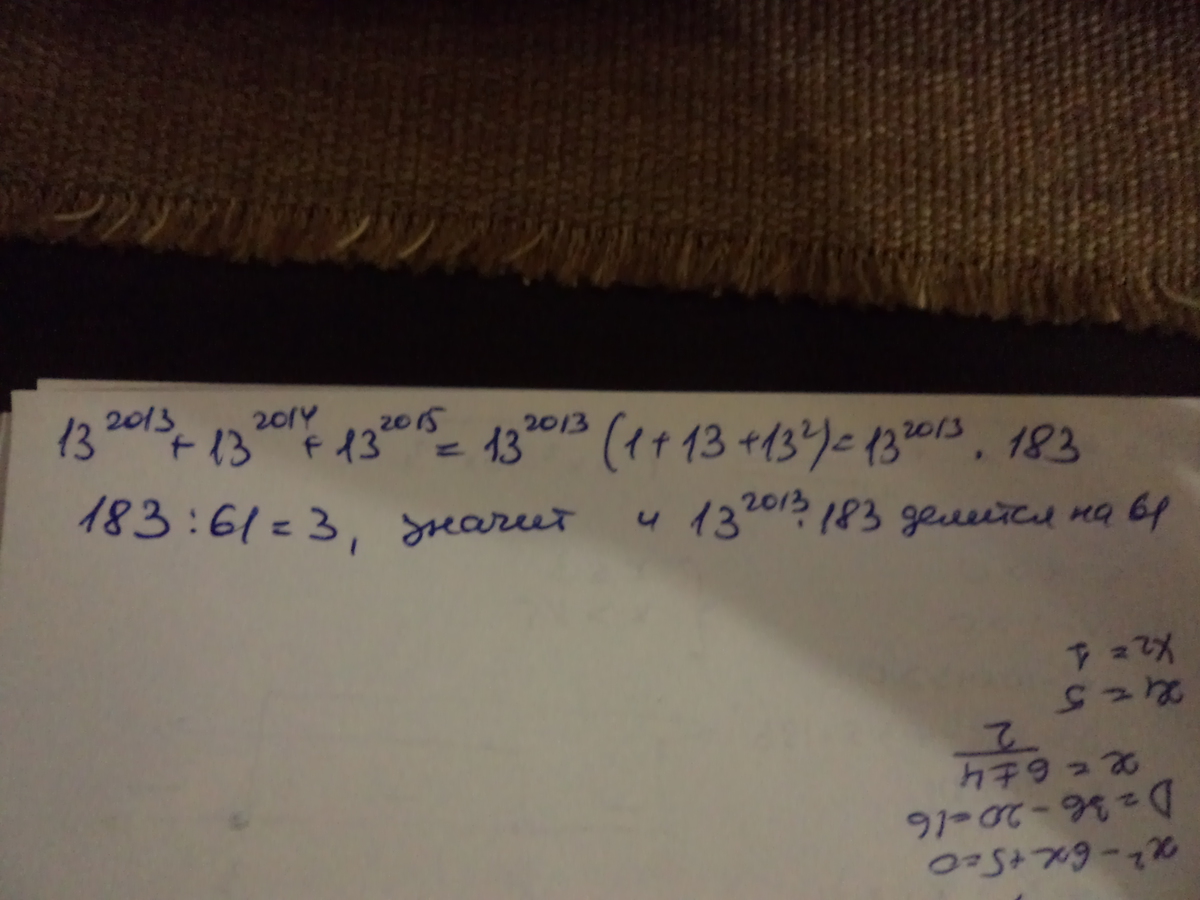 13^2013 + 13^2014 + 13^2015 = 13^2013 (1 + 13 + 13^2) = 13^2013 · 183
183 : 61 = 3, значит и 13^2013 · 183 делится на 61
x² - 6x + 5 = 0
D = 36 - 20 = 16
x = (6 ± 4) / 2
x1 = 5
x2 = 1